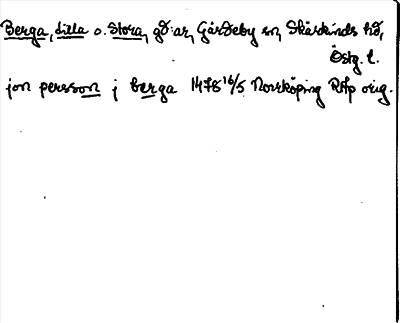 Berga, Lilla o. Stora, gd:ar, Gårdeby sn, Skärkinds hd,
Östg. l.
jon persson j berga 1478 16/5 Norrköping RAp orig.